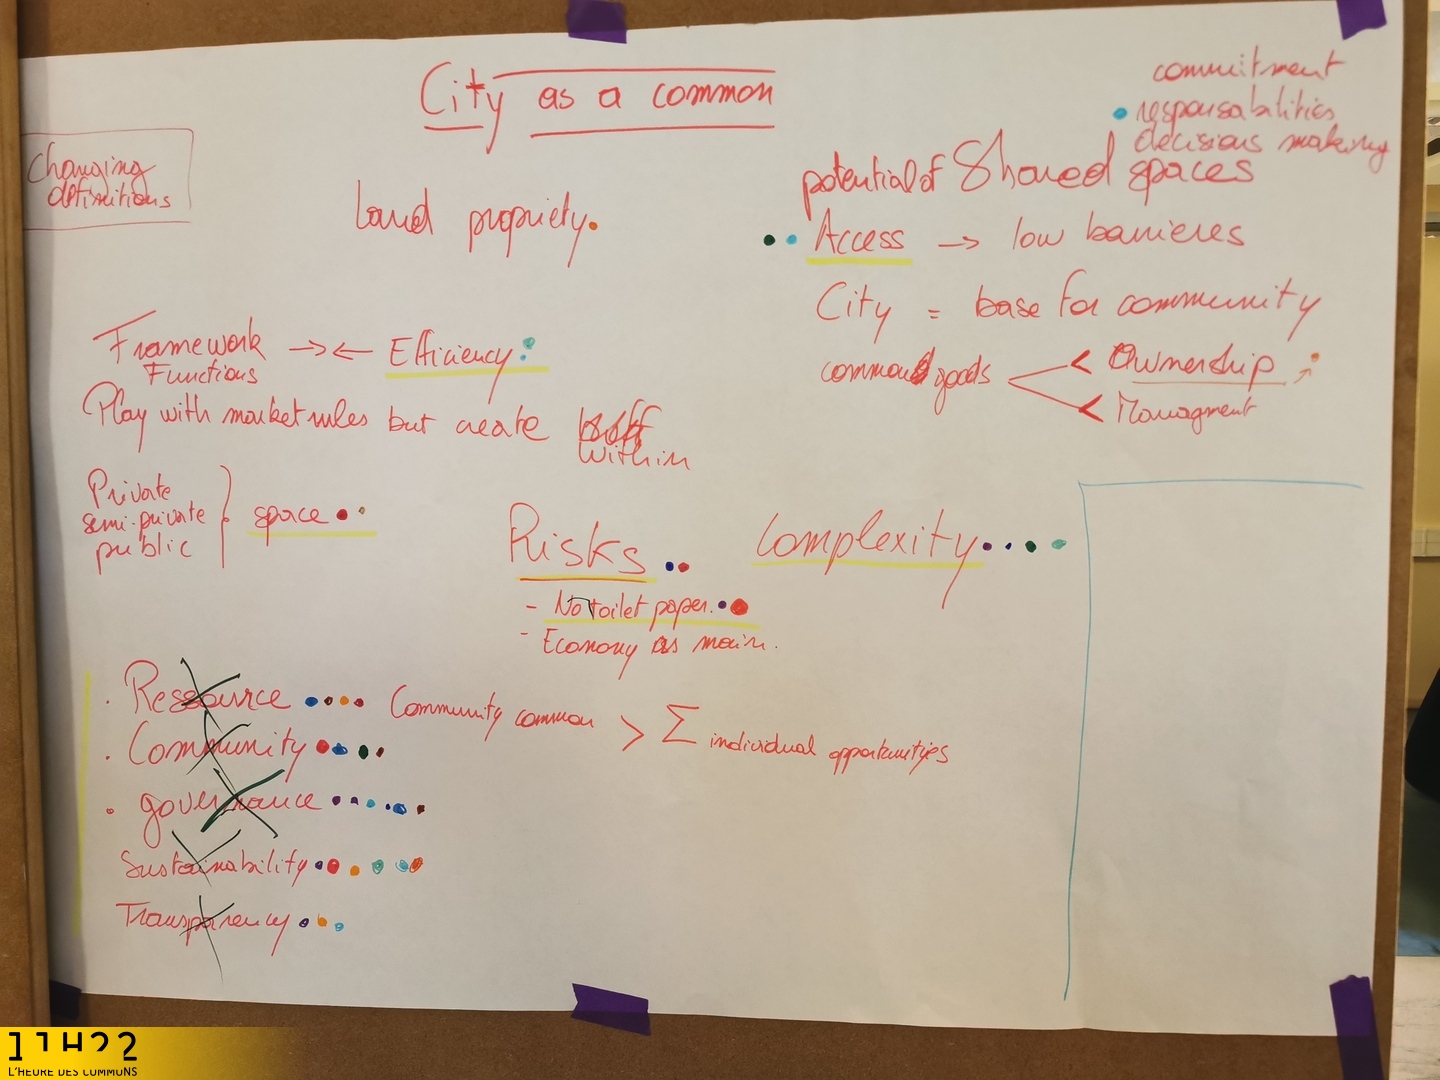 City as a common
commitment
responsabilities
decisions making
Changing
definitions
Land propriety.
potential of Shared spaces
Access → low barrieres
City = base for community
common goods
< Ownership
< Managment
Framework → ← Efficiency
Functions
Play with market rules but create
within
Private
semi-private
public
space
Risks
- No toilet paper.
- Economy as main.
Complexity
. Ressource
. Community
. governance
Sustainability
Transparency
Community common > Σ individual opportunities
11H22
L'HEURE DES COMMUNS